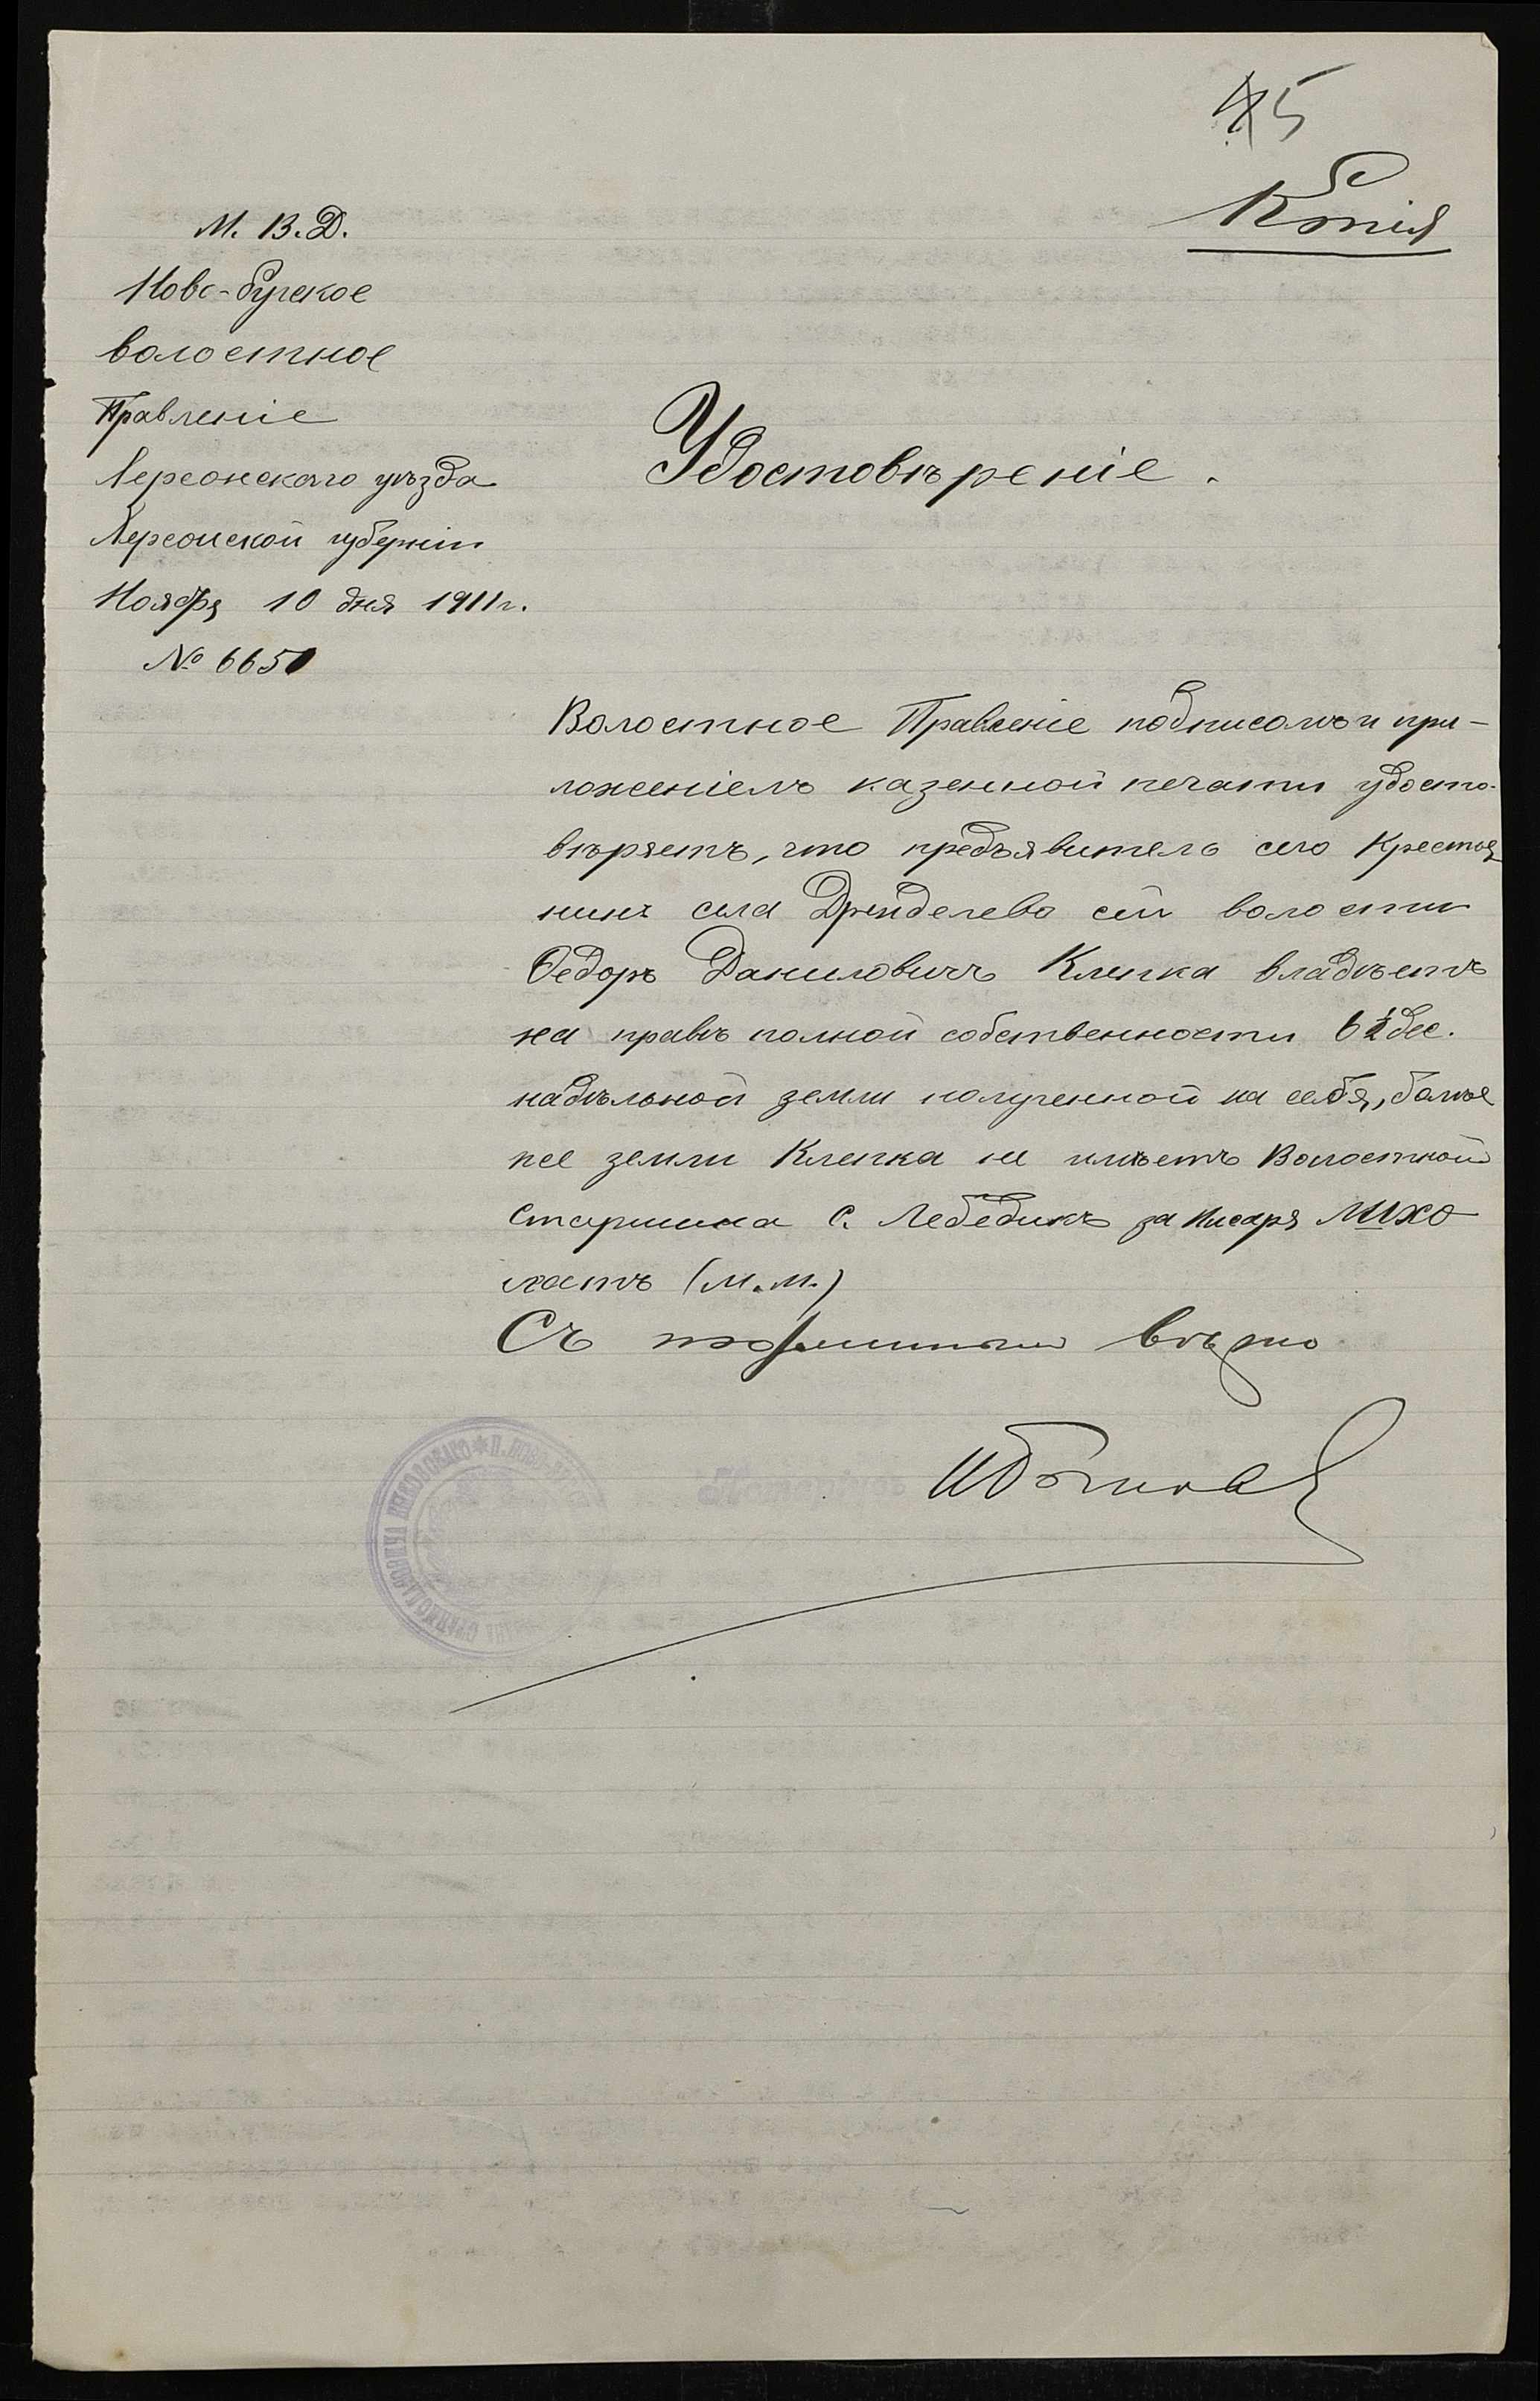 5
Копія
М. В. Д.
Ново-Бугское
волостное
Правленіе
Херсонскаго уѣзда
Херсонской губерніи
Ноября 10 дня 1911 г.
№ 6650
Удостовѣреніе.
Волостное Правленіе подписомъ и при-
ложеніемъ казенной печати удосто-
вѣряетъ, что предъявитель сего Крестья
нинъ села сей волости
Ѳедоръ Даниловичъ Клепка владѣетъ
на правѣ полной собственности 6 ½ дес.
надѣльной земли полученной на себя, болѣе
нее земли Клепка не имѣетъ Волостной
Старшина С. Лебедикъ за Писаря Михо
(М.П.)
Съ подлиннымъ вѣрно
Нотаріусъ